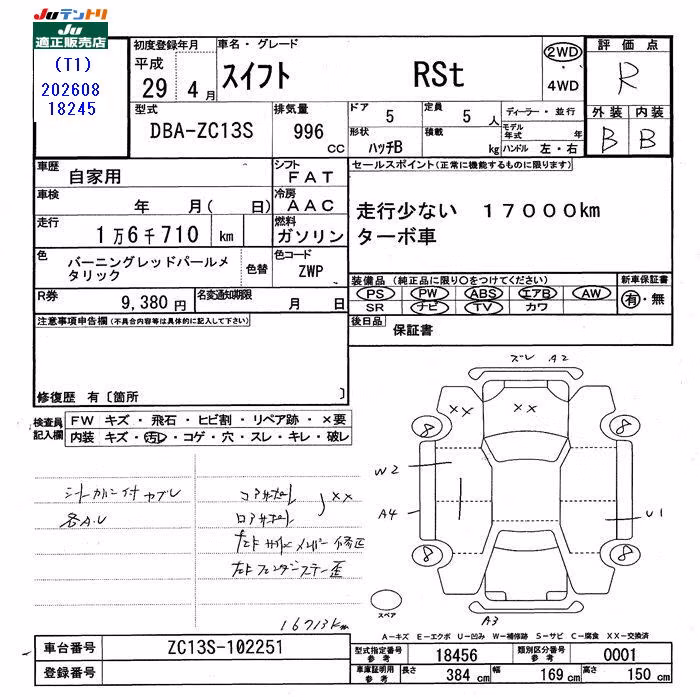 JUテントリ
JU
適正販売店
(T1)
202608
18245
初度登録年月
平成
29年 4月
車名・グレード
スイフト RSt
2WD
・
4WD
評価点
R
外装 内装
B B
型式
DBA-ZC13S
排気量
996
CC
ドア
5
定員
5 人
形状
ハッチB
積載
kg
ディーラー・並行
モデル年式 年
ハンドル 左・右
車歴
自家用
シフト
FAT
車検
年 月( 日)
冷房
AAC
走行
1万6千710 km
燃料
ガソリン
色
バーニングレッドパールメタリック
色替
色コード
ZWP
R券
9,380円
名変通知期限
月 日
セールスポイント(正常に機能するものに限ります)
走行少ない 17000km
ターボ車
装備品(純正品に限り○をつけてください)
PS PW ABS エアB AW
SR ナビ TV カワ
新車保証書
有・無
後日品
保証書
注意事項申告欄(不具合内容等は具体的に記入して下さい)
修復歴 有〔箇所 〕
検査員記入欄
FW キズ・飛石・ヒビ割・リペア跡・×要
内装 キズ・汚レ・コゲ・穴・スレ・キレ・破レ
コアサポートL
ロアサポートL
XX
修正
歪
16713km
ズレ A2
XX XX
8 8
W2
A4
U1
8 8
A3
スペア
A-キズ E-エクボ U-凹み W-補修跡 S-サビ C-腐食 XX-交換済
車台番号
ZC13S-102251
登録番号
型式指定番号
参考
18456
類別区分番号
参考
0001
車庫証明用
参考
長さ 384 cm 幅 169 cm 高さ 150 cm